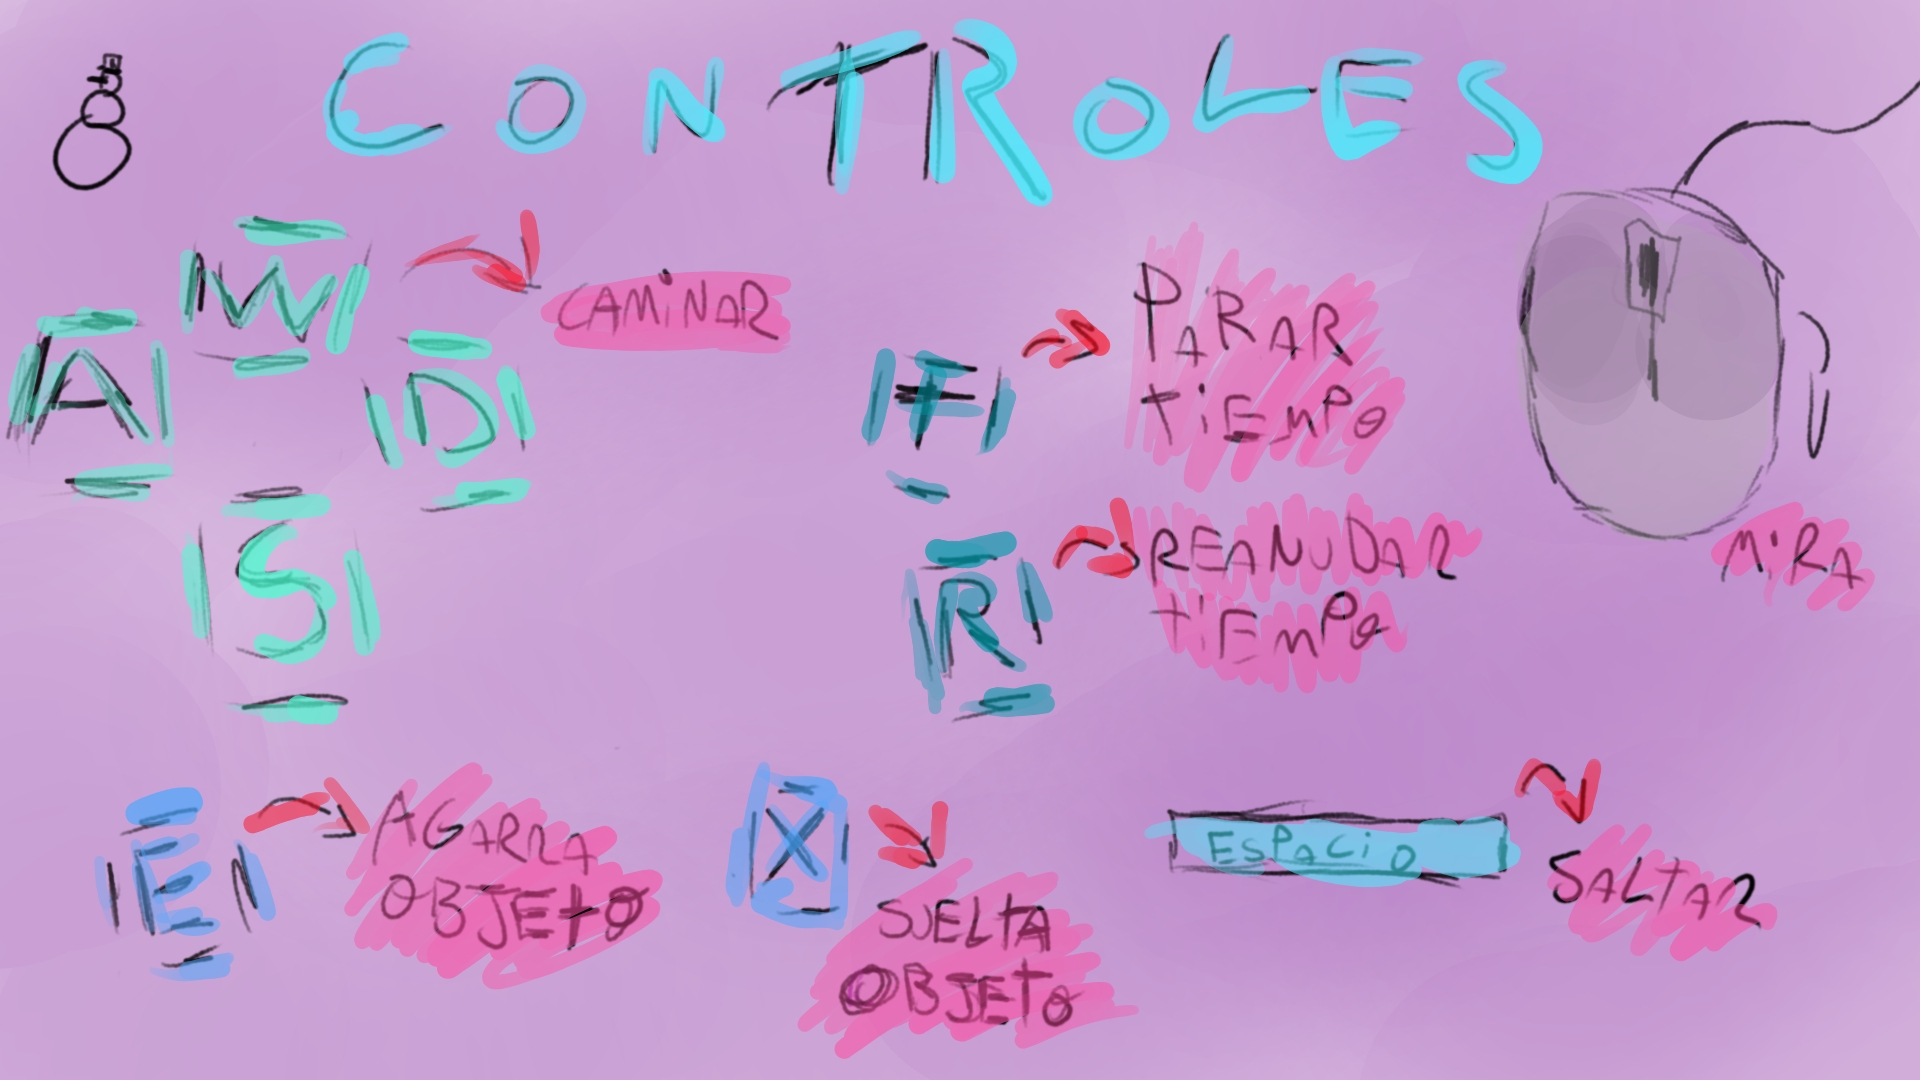 CONTROLES
W
A
D
S
CAMiNAR
F
PARAR
tiEmPO
R
REANUDAR
tiEmPO
MiRA
E
AGARRA
OBJEtO
X
SUELTA
OBJETO
ESPACiO
SALTAR